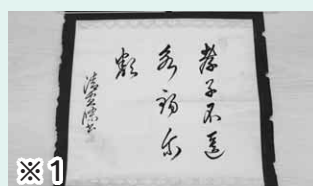 孝子不匱
永錫尓
類
※1